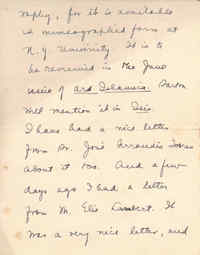 reply, for it is available
in mimeographed form at
N.Y. University. It is to
be reviewed in the June
issue of Ars Islamica. 
will mention it in Isis.
I have had a nice letter
from Dr. José
about it too. And a few
days ago I had a letter
from M. Elie Lambert. It
was a very nice letter, and